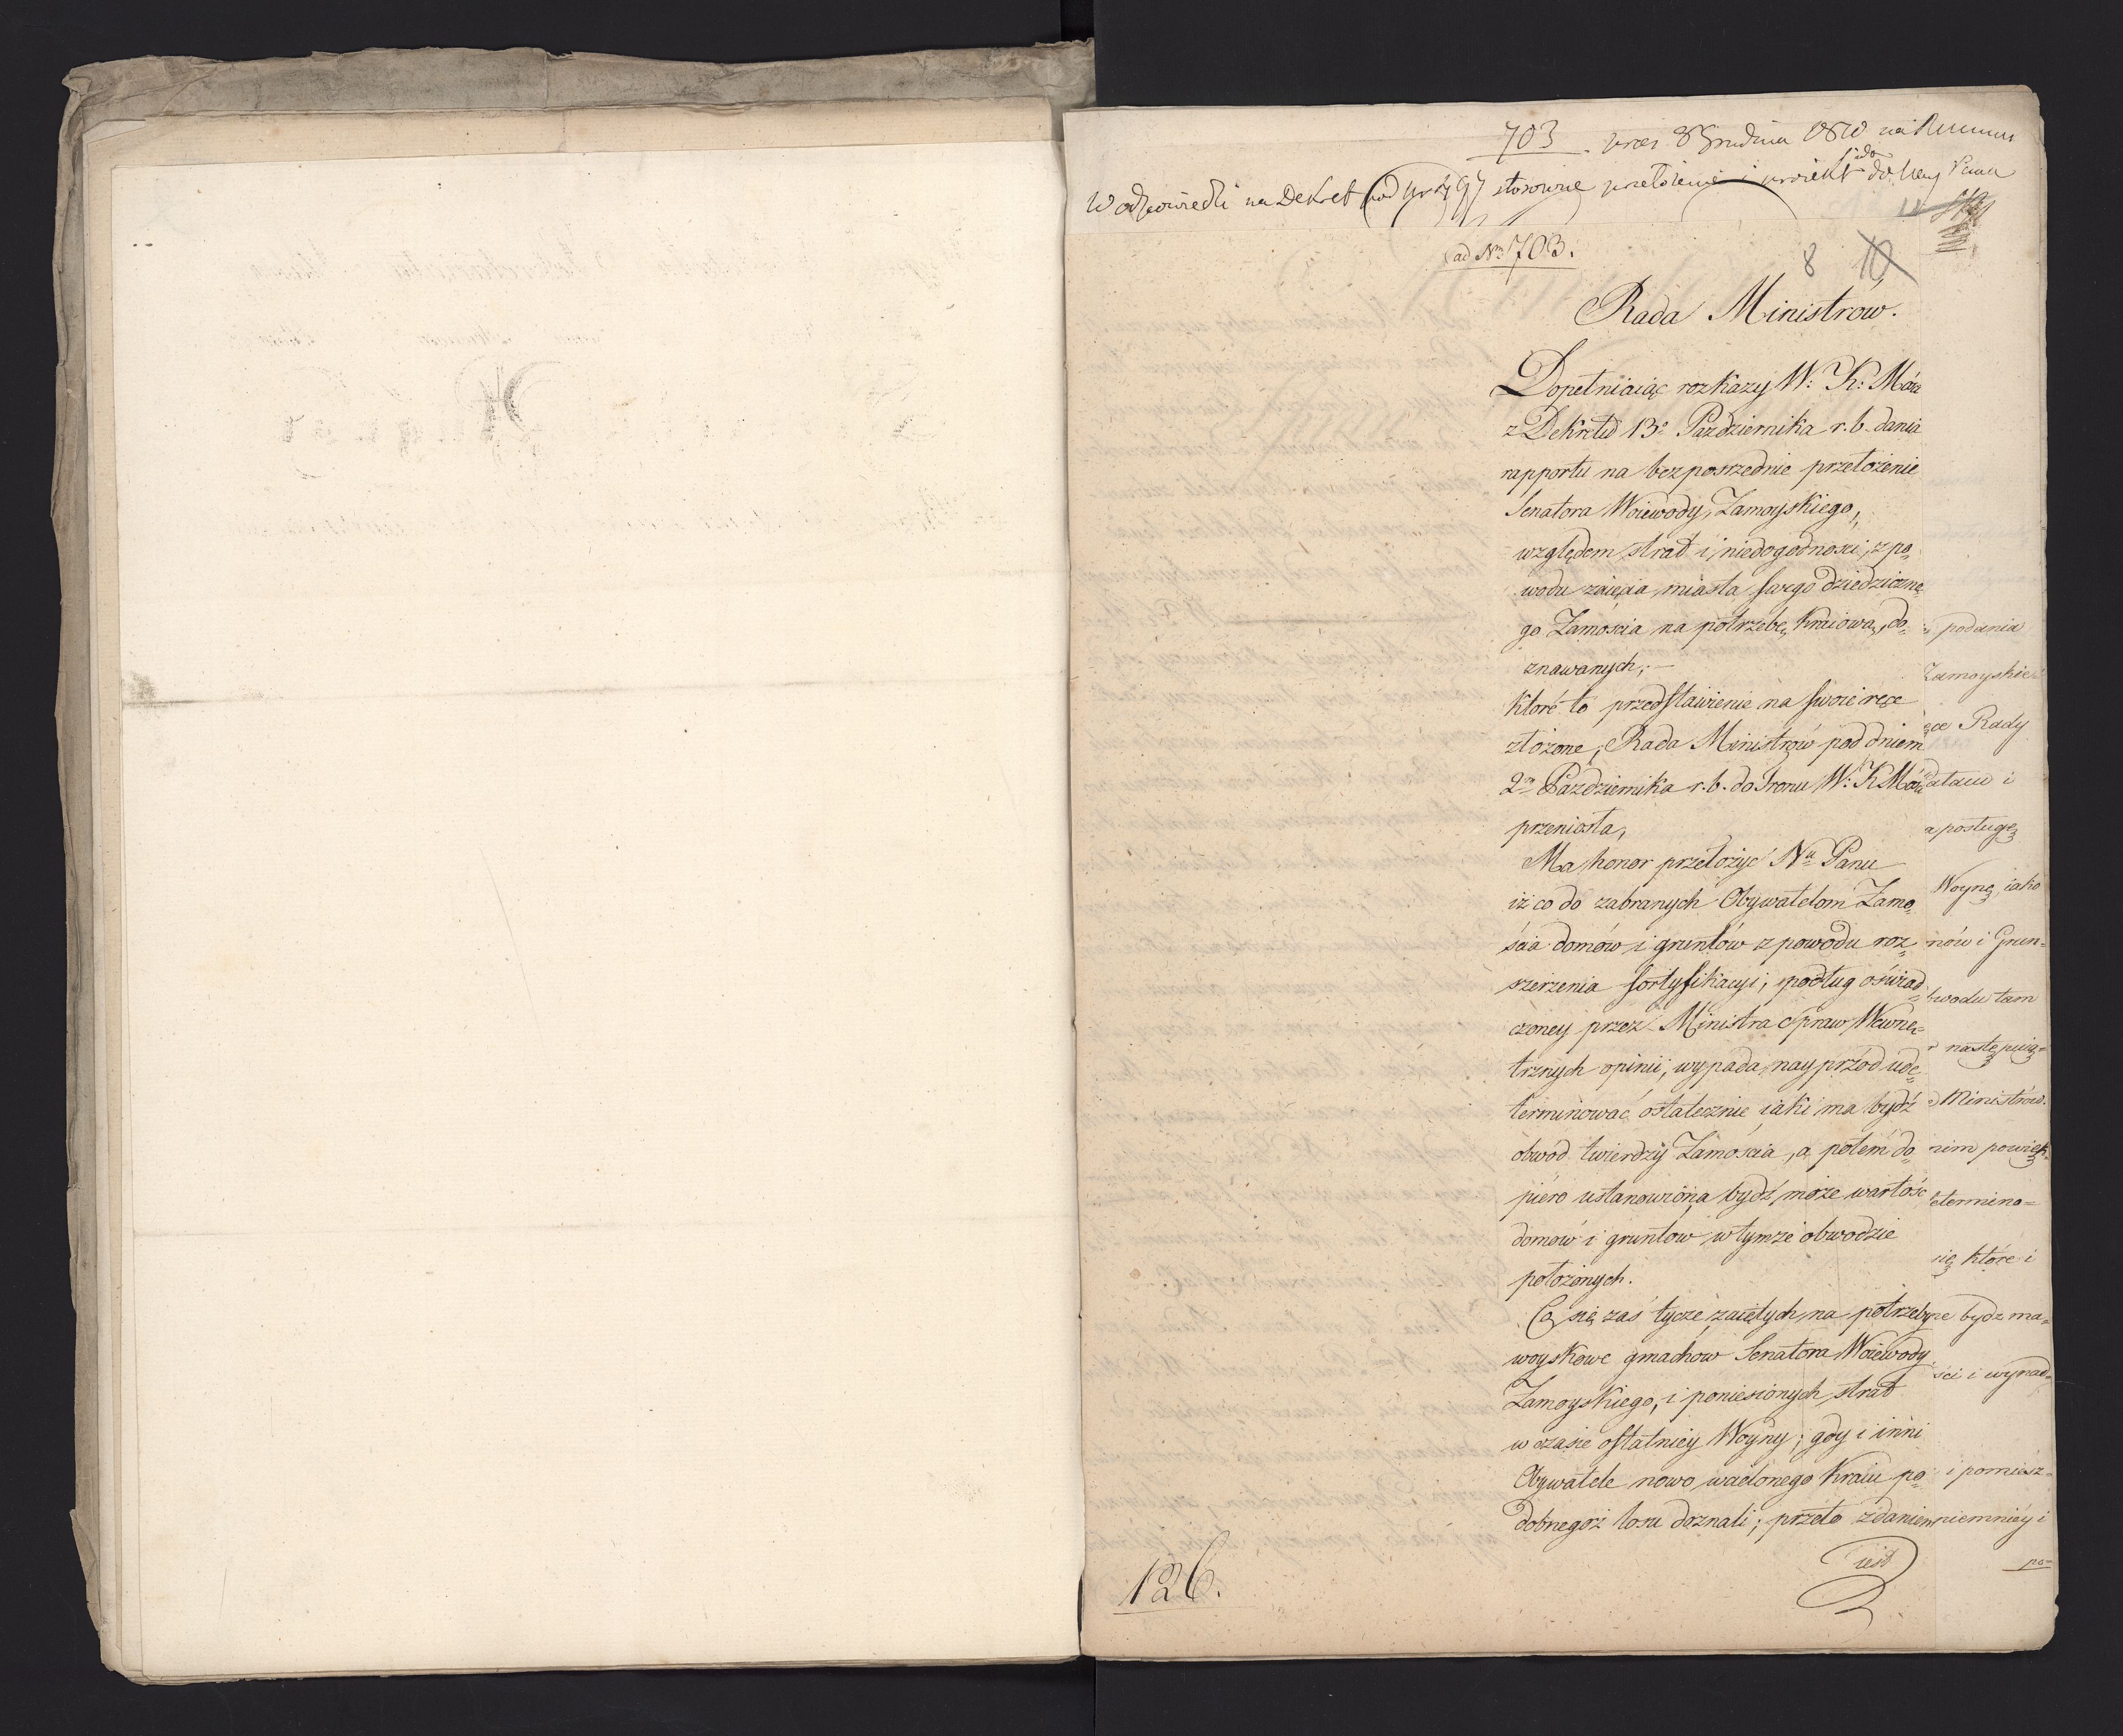 703. prez. 8 Grudnia 1810 na
W odpowiedzi na Dekret pod Nr stosowne przełożenie i proiekt do Nay. Pana
ad Nro 703.
8 10
Rada Ministrów.
Dopełniaiąc rozkazy W: K: Mści
z Dekretu 13o Października r. b. dania
rapportu na bezposrzednie przełożenie
Senatora Woiewody Zamoyskiego,
względem strat i niedogodności, z po„
wodu zaięcia miasta swego dziedziczne„
go Zamościa na potrzebę kraiową, do„
znawanych;—
które to przedstawienie na swoie ręce
złożone, Rada Ministrów pod dniem
2m Października r. b. do Tronu W: K Mści
przeniosła,
Ma honor przełożyć Nu Panu
iż co do zabranych Obywatelom Zamo„
ścia domów i gruntów z powodu roz„
szerzenia fortyfikacyi, podług oświad„
czoney przez Ministra Spraw Wewnę„
trznych opinii, wypada nayprzód ude„
terminować ostatecznie iaki ma bydź
obwód twierdzy Zamościa, a potém do„
piéro ustanowiona bydź może wartość
domów i gruntow w tymże obwodzie
położonych.
Co się zaś tycze zaiętych na potrzeby
woyskowe gmachów Senatora Woiewody
Zamoyskiego, i poniesionych strat
w czasie ostatniéy Woyny; gdy i inni
Obywatele nowo wcielonego Kraiu po„
dobnegoż losu doznali; przeto zdaniem
iest
podania
Zamoyskie
ęce Rady
datam i
a posługę
Woynę, iako
nów i Grun=
bwodu tam
następuią=
Ministrów.
nim powięk=
etermino=
się które i
ne bydz ma=
ści i wynad=
i pomiesz=
niemniéy i
po=
126.